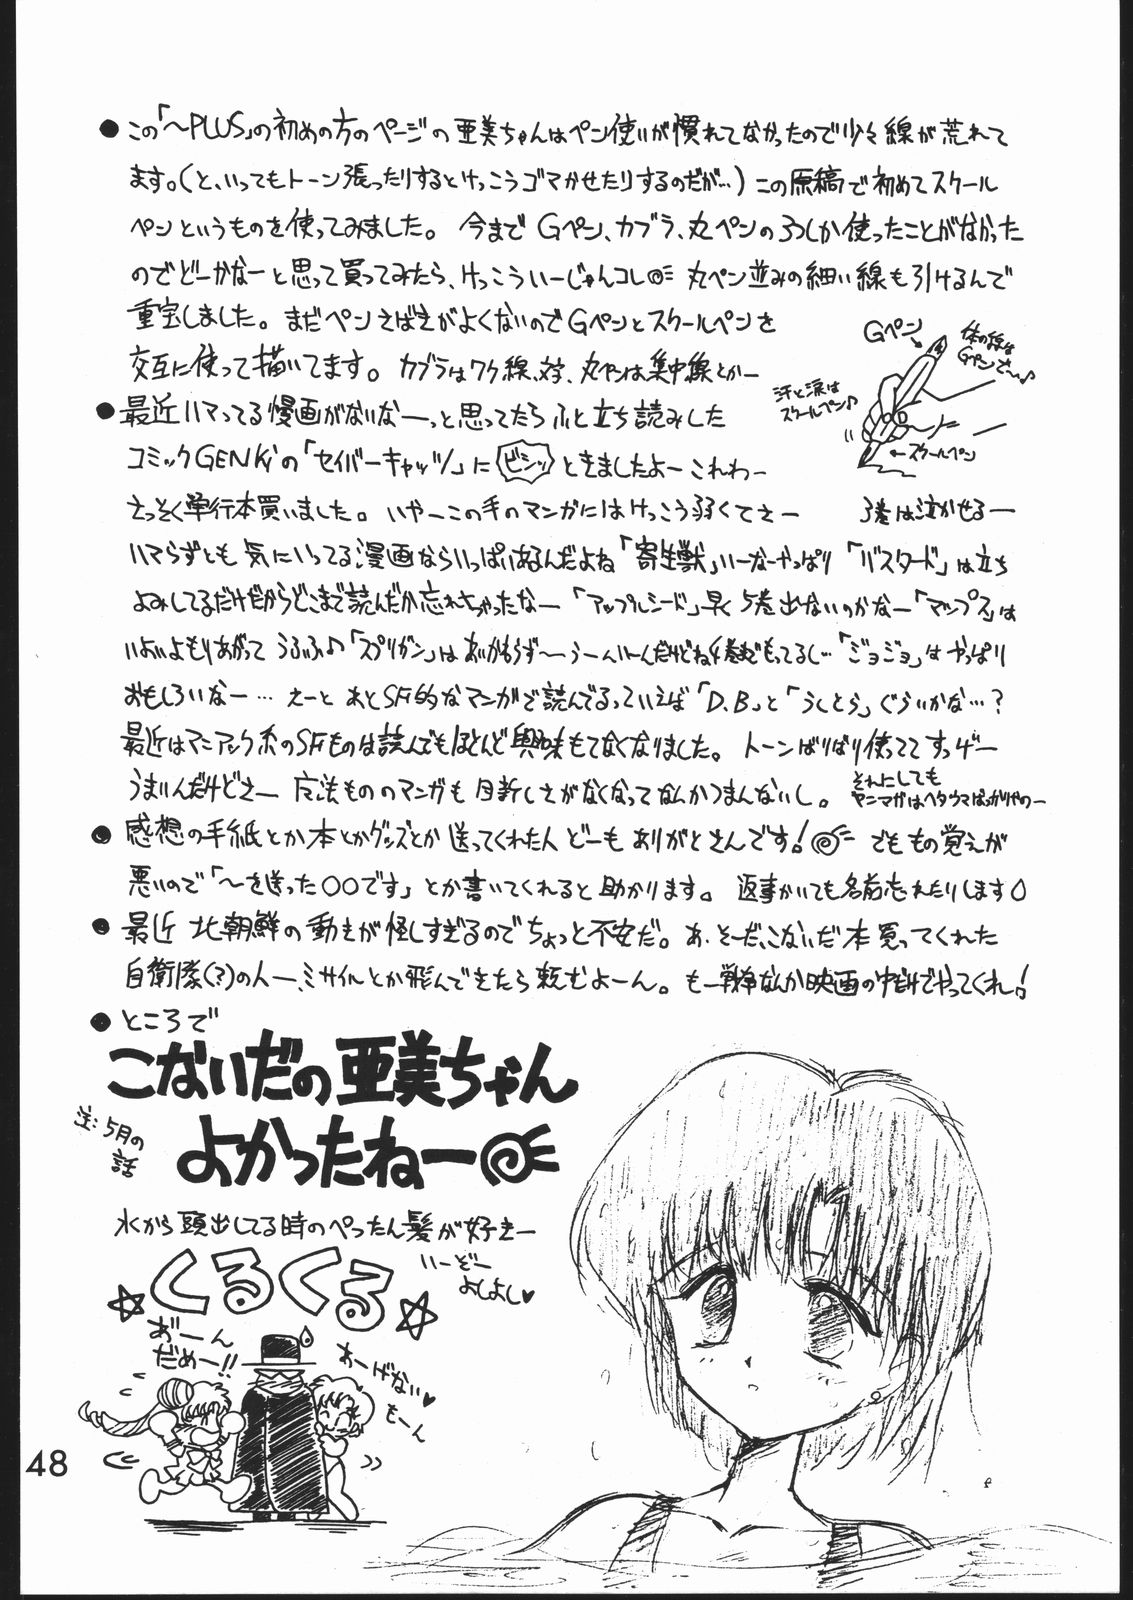 ●この「〜PLUS」の初めの方のページの亜美ちゃんはペン使いが慣れてなかったので少々線が荒れて
ます。(と、いってもトーン張ったりするとけっこうゴマかせたりするのだが…)この原稿で初めてスクール
ペンというものを使ってみました。今までGペン、カブラ、丸ペンの3つしか使ったことがなかった
のでどーかなーと思って買ってみたら、けっこういーじゃんコレ 丸ペン並みの細い線も引けるんで
重宝しました。まだペンさばきがよくないのでGペンとスクールペンを
交互に使って描いてます。カブラはワク線、丸ペンは集中線とかー
Gペン
体の線は
Gペンでっ♪
汗と涙は
スクールペン♪
←スクールペン
●最近ハマってる漫画がないなーっと思ってたらふと立ち読みした
コミックGENKiの「セイバーキャッツ」にビシッときましたよーこれわー
さっそく単行本買いました。いやーこの手のマンガにはけっこう弱くてさー 3巻は泣かせるー
ハマらずとも気にいってる漫画ならいっぱいあるんだよね「寄生獣」いーなーやっぱり「バスタード」は立ち
よみしてるだけだからどこまで読んだか忘れちゃったなー「アップルシード」早く5巻出ないのかなー「マップス」は
いよいよもりあがってうふふ♪「スプリガン」はあいかわらず〜うーんいーんだけどね もってるし…「ジョジョ」はやっぱり
おもしろいなー…えーとあとSF的なマンガで読んでるっていえば「D.B」と「うしとら」ぐらいかな…?
最近はマニアック系のSFものは読んでもほとんど興味もてなくなりました。トーンばりばり使っててすっげー
うまいんだけどさー 魔法もののマンガも目新しさがなくなってなんかつまんないし。
それにしても
ヤンマガはヘタウマばっかりやのー
●感想の手紙とか本とかグッズとか送ってくれた人どーもありがとさんです! でももの覚えが
悪いので「〜を送った○○です」とか書いてくれると助かります。返事かいても名前忘れたりします
●最近北朝鮮の動きが怪しすぎるのでちょっと不安だ。あ、そーだ、こないだ本買ってくれた
自衛隊(?)の人ー、ミサイルとか飛んできたら頼むよーん。もー戦争なんか映画の中だけでやってくれ!
●ところで
こないだの亜美ちゃん
よかったねー
注:5月の
話
水から頭出してる時のぺったん髪が好きー
くるくる
いーぞー
よしよし♥
あ゛ーん
だめー!!
あーげない♥
もーん
48